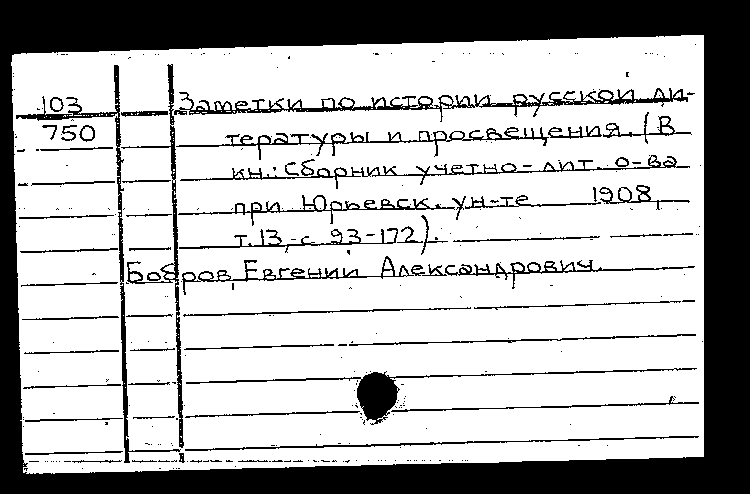 103
750
Заметки по истории русской ли-
тературы и просвещения. (В
кн.: Сборник учетно-лит. о-ва
при Юрьевск. ун-те 1908,
т.13,-с 93-172).
Бобров, Евгений Александрович.